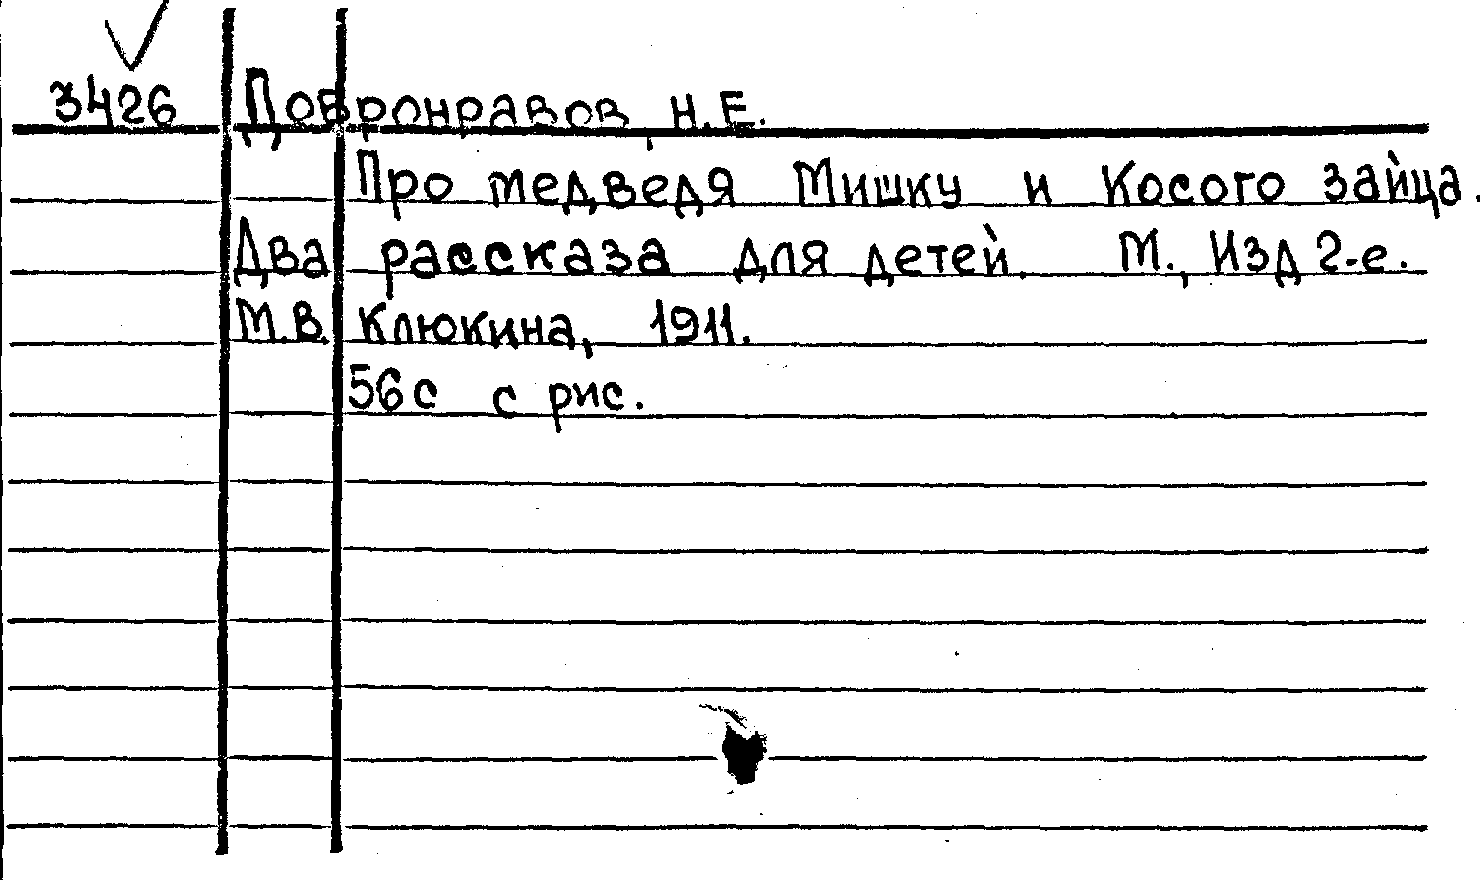 3426 Добронравов, Н.Е.
Про медведя Мишку и Косого зайца.
Два рассказа для детей. М., Изд 2-е.
М.В. Клюкина, 1911.
56 с с рис.